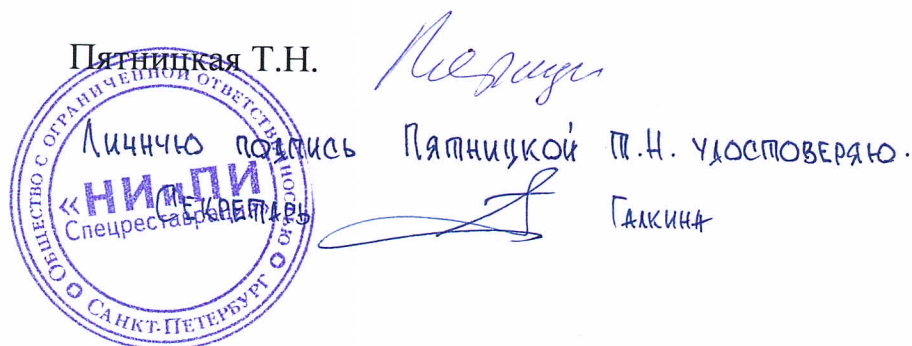 Пятницкая Т.Н.
Личную подпись Пятницкой Т.Н. удостоверяю.
Секретарь Галкина
ОБЩЕСТВО С ОГРАНИЧЕННОЙ ОТВЕТСТВЕННОСТЬЮ
«НИиПИ
Спецреставрация»
САНКТ-ПЕТЕРБУРГ